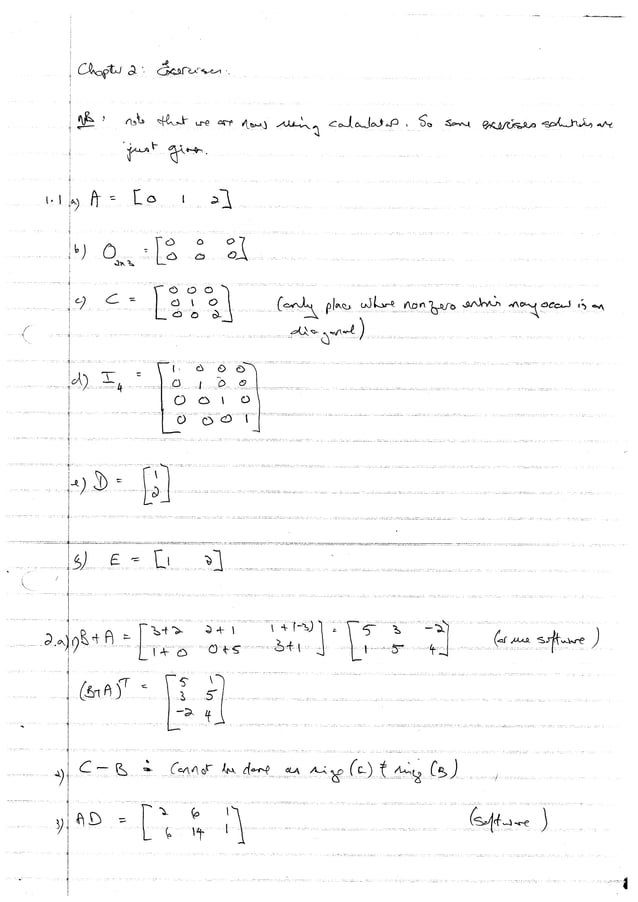 Chapter 2: Exercises.
NB: note that we are now using calculators. So some exercises solutions are
just given.
1.1 a) A = [0 1 2]
b) O₂ₓ₃ = [0 0 0
0 0 0]
c) C = [0 0 0
0 1 0
0 0 2] (only place where nonzero entries may occur is on
diagonal)
d) I₄ = [1 0 0 0
0 1 0 0
0 0 1 0
0 0 0 1]
e) D = [1
2]
f) E = [1 2]
2.a) 1) B+A = [3+2 2+1 1+(-3)
1+0 0+5 3+1] = [5 3 -2
1 5 4] (or use software)
(B+A)ᵀ = [5 1
3 5
-2 4]
2) C - B : Cannot be done as size (C) ≠ size (B)
3) AD = [2 6 1
6 14 1] (software)